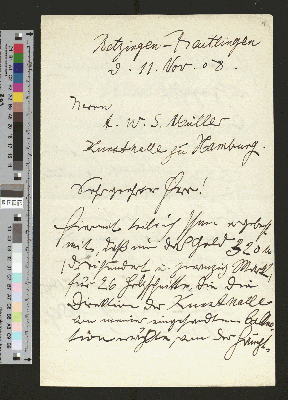 Betzingen-Reutlingen
d. 11. Nov. 08.
Herrn
A. W. S. Müller
Kunsthalle zu Hamburg.
Sehr geehrter Herr!
Hiermit teile ich Ihnen ergebenst
mit, daß mir das Geld 320 M
(dreihundert u. zwanzig Mark)
für 26 Holzschnitte, die die
Direktion der Kunsthalle
von meiner eingesandten Collec-
tion wählte, von der Haupt-